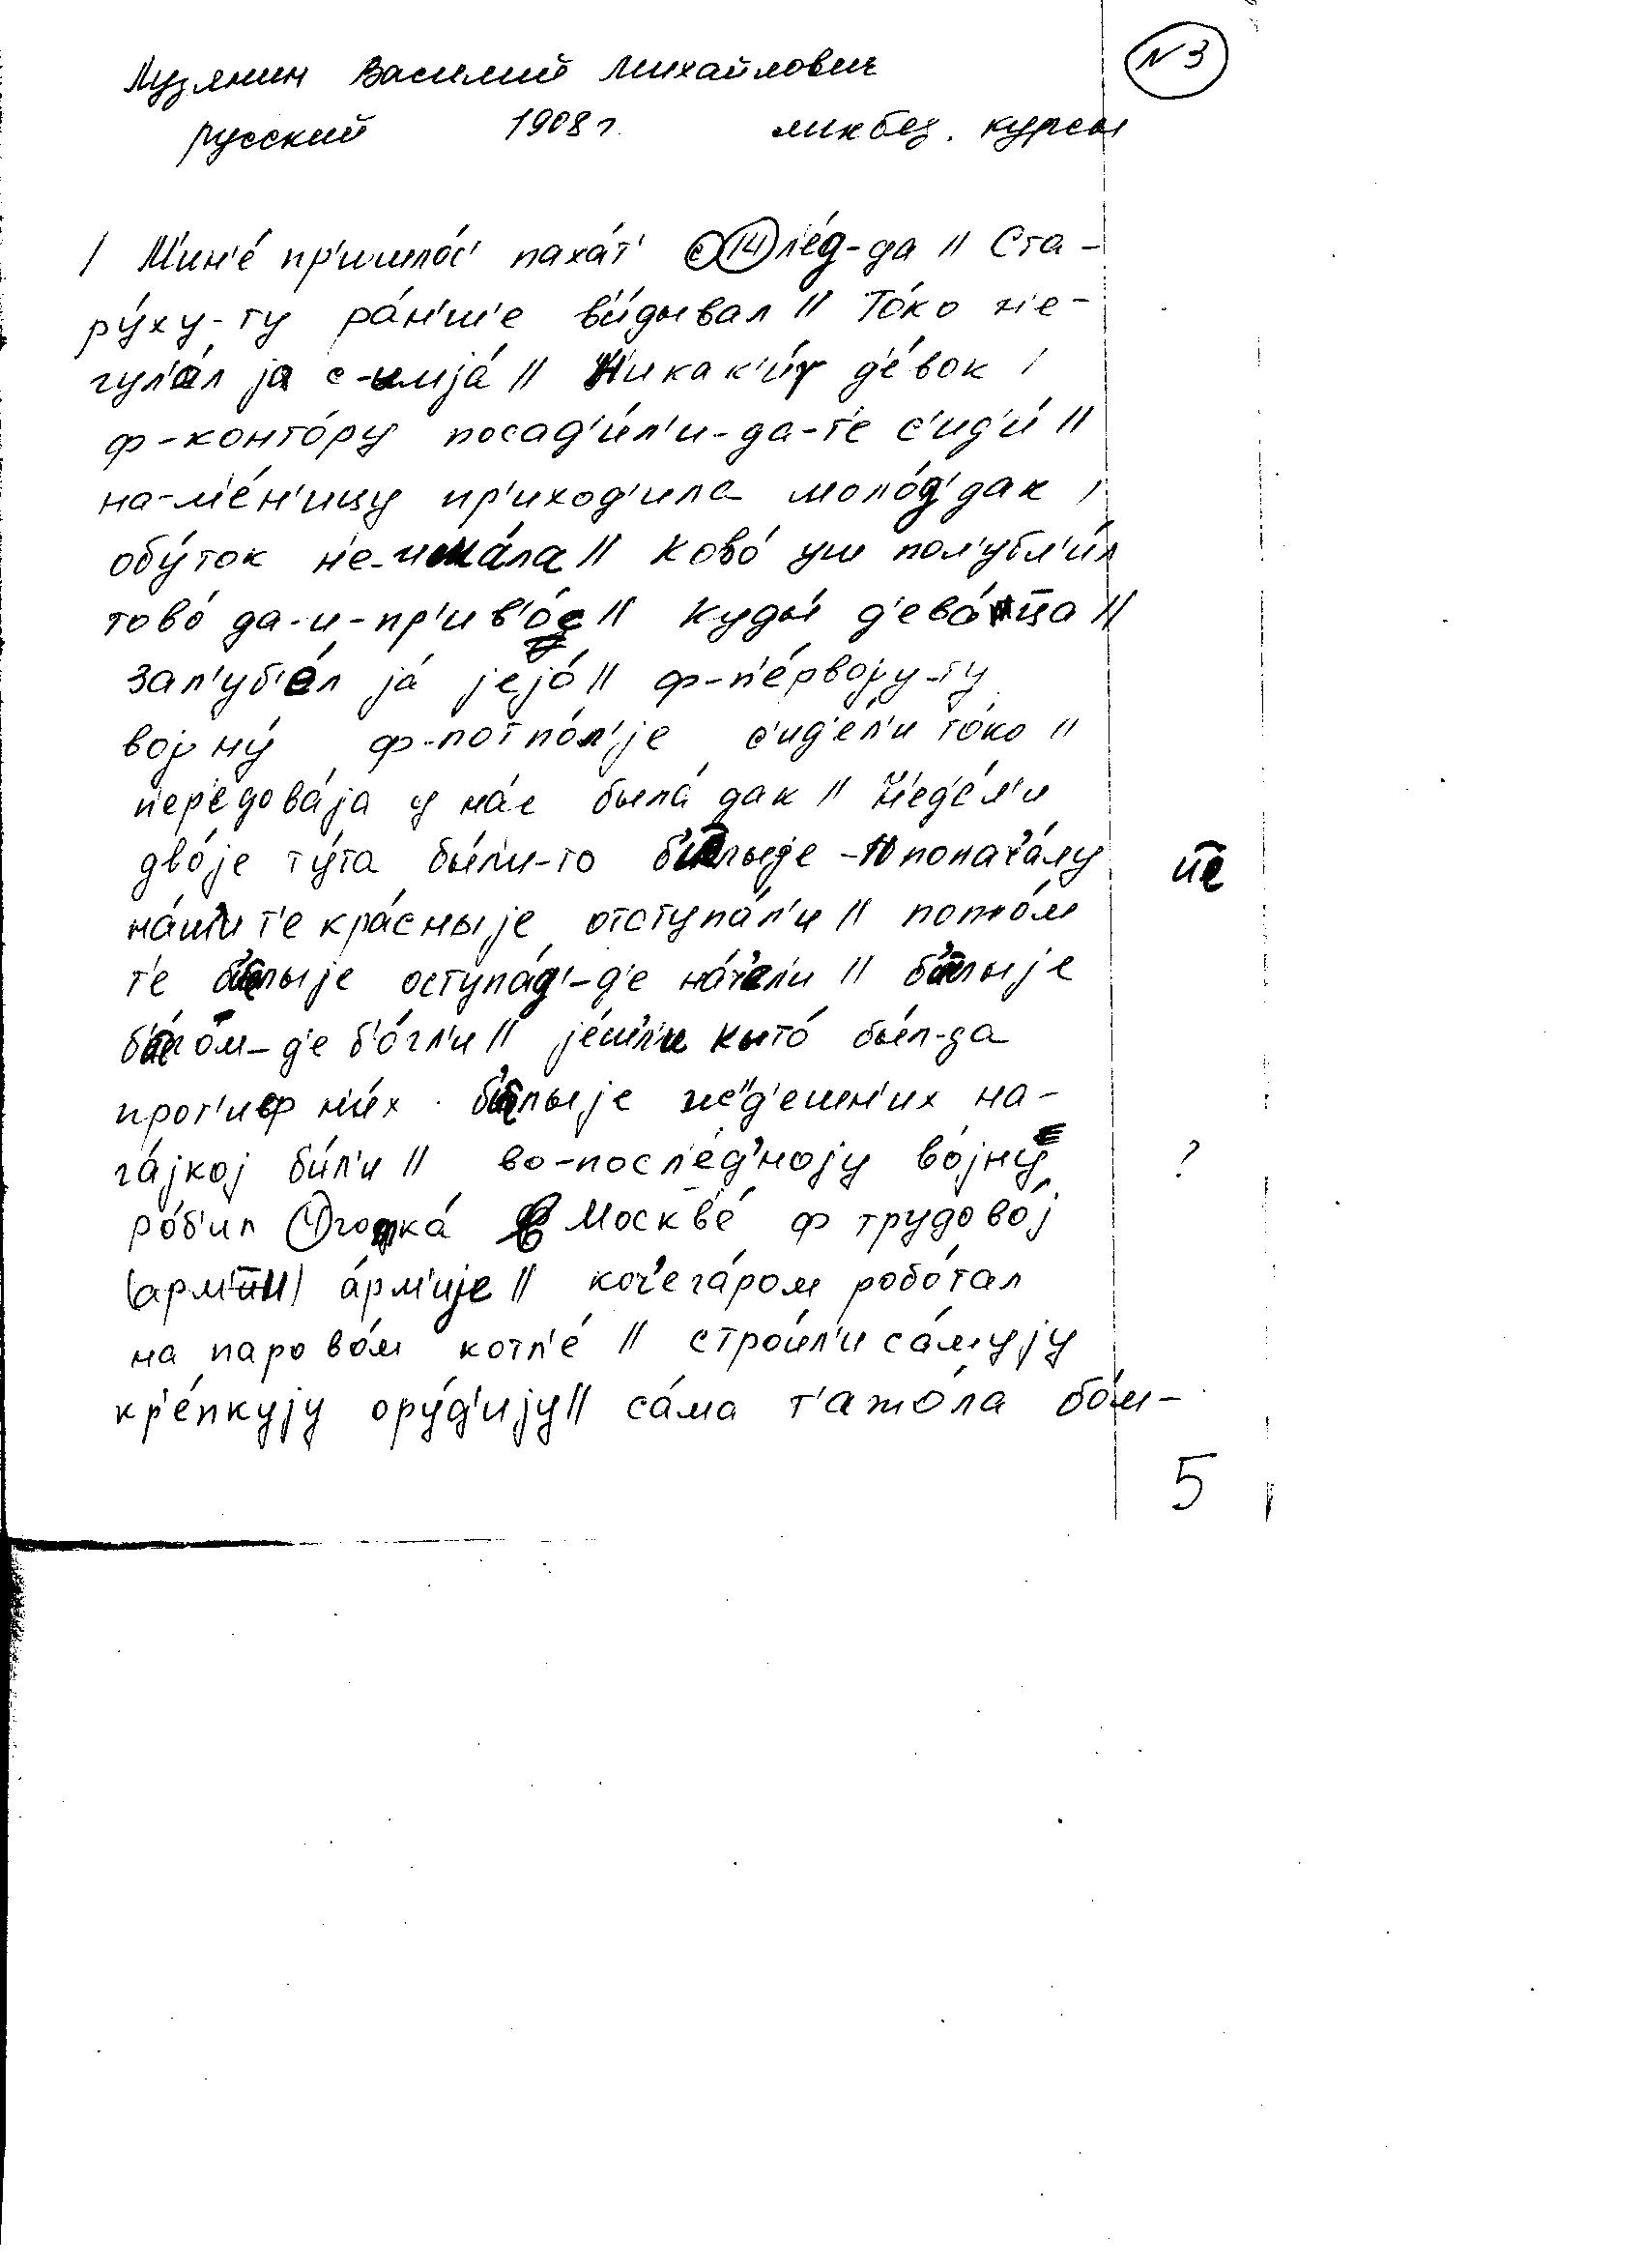 №3
Лузянин Василий Михайлович
русский 1908 г. ликбез. курсы
/ М'ин'е́ пр'ишло́с' паха́т' с 14 л'е́д-да // Ста-
ру́ху-ту ра́н'ш'е в'и́дывал // То́ко н'е-
гул'а́л jа с-имjа́ // Никак'и́х д'е́вок /
ф-конто́ру посад'и́л'и-да-т'е с'ид'и́ //
на-м'е́н'ицу пр'иход'ила моло́д' дак /
обу́ток н'е-има́ла // Ково́ уш пол'убл'и́л
тово́ да-и-пр'ив'о́с // Куды́ д'ева́ца //
зал'уб'е́л jа́ jejо́ // ф-п'е́рвоjу-ту
воjну́ ф-потпо́л'је с'ид'е́л'и то́ко //
п'ер'едова́jа у на́с была́ дак // Н'ед'е́л'и
дво́је ту́та бы́ли-то понача́лу
на́шыт'е кра́сныје отступа́л'и // пото́м
т'е оступа́д'-д'е на́чел'и //
-д'е б'о́гл'и // је́шл'и кыто́ бы́л-да
прот'иф н'и́х н'ед'ешн'их на-
га́јкој би́л'и // во-посл'е́д'ноју во́јну ?
ро́б'ил 4 го́тка́ Москв'е́ ф трудово́ј
(арм'ии) а́рм'ије // коч'ега́ром робо́тал
на парово́м котл'е́ // стро́ил'и са́мују
кр'е́пкују ору́д'ију // са́ма т'ажо́ла бо́м-
5